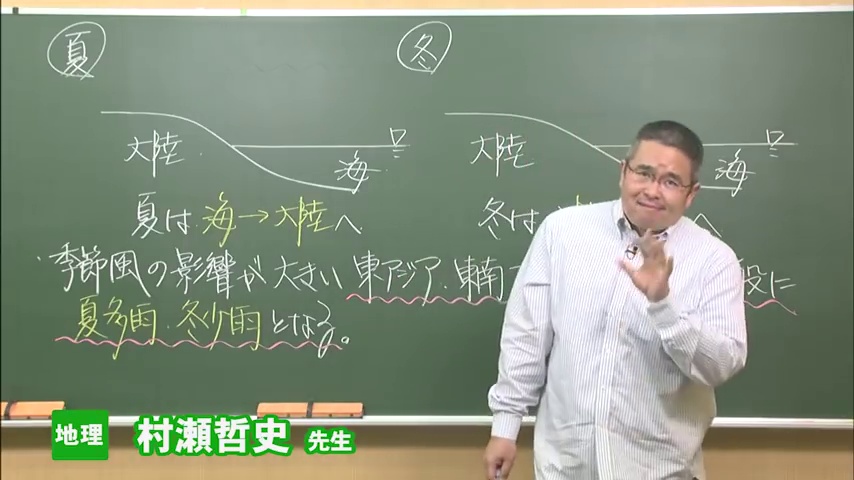 夏
冬
大陸
海
大陸
海
夏は 海→大陸へ
冬は
へ
季節風の影響が大きい 東アジア・東南
に
夏多雨・冬少雨となる。
地理 村瀬哲史 先生